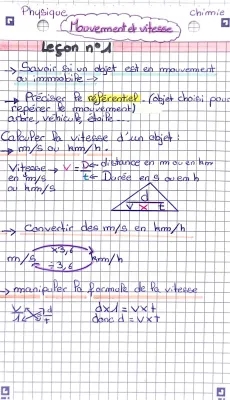 Physique Chimie
Mouvement et vitesse
Leçon n°1
→ Savoir si un objet est en mouvement
ou immobile →
→ Préciser le référentiel. (objet choisi pour
repérer le mouvement)
arbre, véhicule, étoile...
Calculer la vitesse d'un objet :
→ m/s ou km/h.
Vitesse → V = D ← distance en m ou en km
en m/s t ← Durée en s ou en h
ou km/h
d
V x t
→ Convertir des m/s en km/h
x3,6
m/s km/h
÷3,6
→ manipuler la formule de la vitesse
V d dx1 = vxt
1 t donc d = vxt